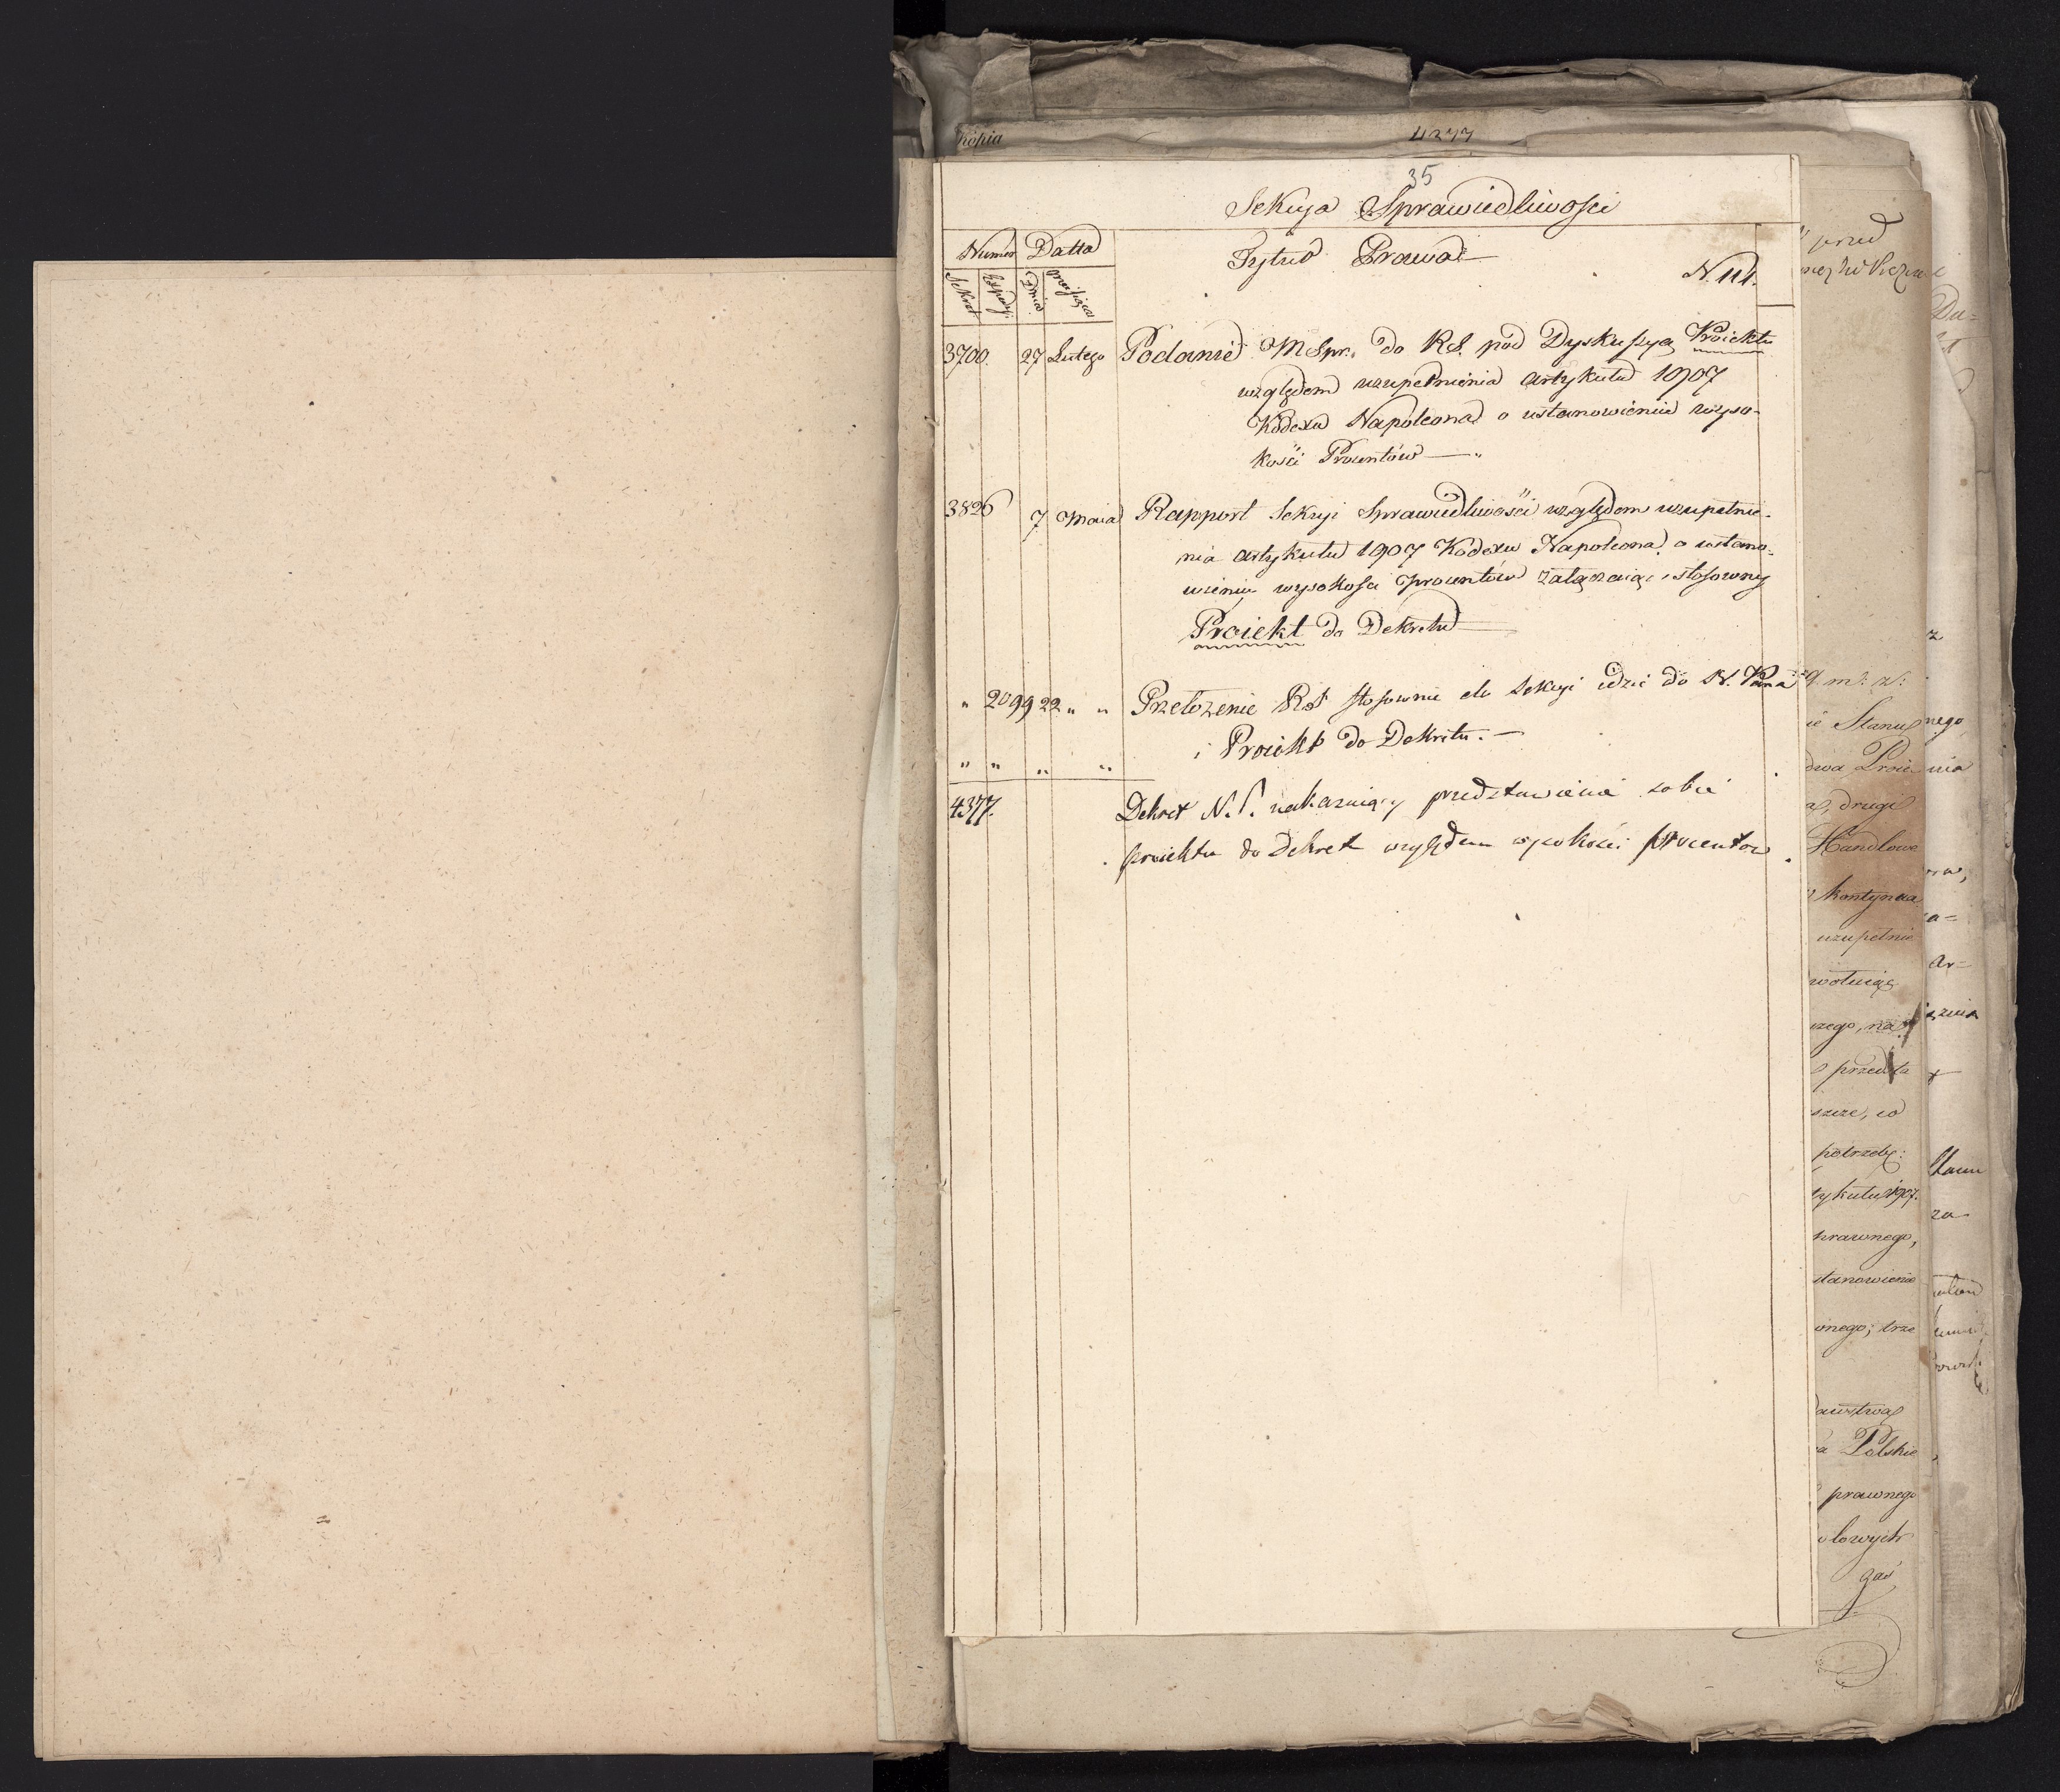 Kopia
4277
35
Sekcya Sprawiedliwości
Numer Datta
Tytuł Prawa
N. 114.
Sekret Expedy: Dnia Miesiąca
3700. 27 Lutego Podanie M Spr. do RS. pod Dyskussyą Proiektu
względem uzupełnienia artykułu 1907
Kodexu Napoleona o ustanowieniu wyso-
kości Procentów — "
3826 7 Maia Rapport Sekcyi Sprawiedliwości względem uzupełnie-
nia artykułu 1907 Kodexu Napoleona o ustano-
wieniu wysokości procentów załączaiąc stosowny
Proiekt do Dekretu —
" 2099 22 " " Przełożenie RSt stosownie do Sekcyi idzie do N. Pana
i Proiekt do Dekretu. —
" " " "
4377. Dekret N. P. nakazuiący przedstawienie sobie
proiektu do Dekret względem wysokości procentów.
przed
q. m: z:
ie Stanu
nego
dwa Proie
nia
drugi
Handlowe
kontynua
uzupełnie
Ar=
wołuiąc
przedsta
szcze, co
potrzebę:
Stanu
tykułu 1907.
za
prawnego,
stanowienie
onego; trze
dawstwa
Polskie
prawnego